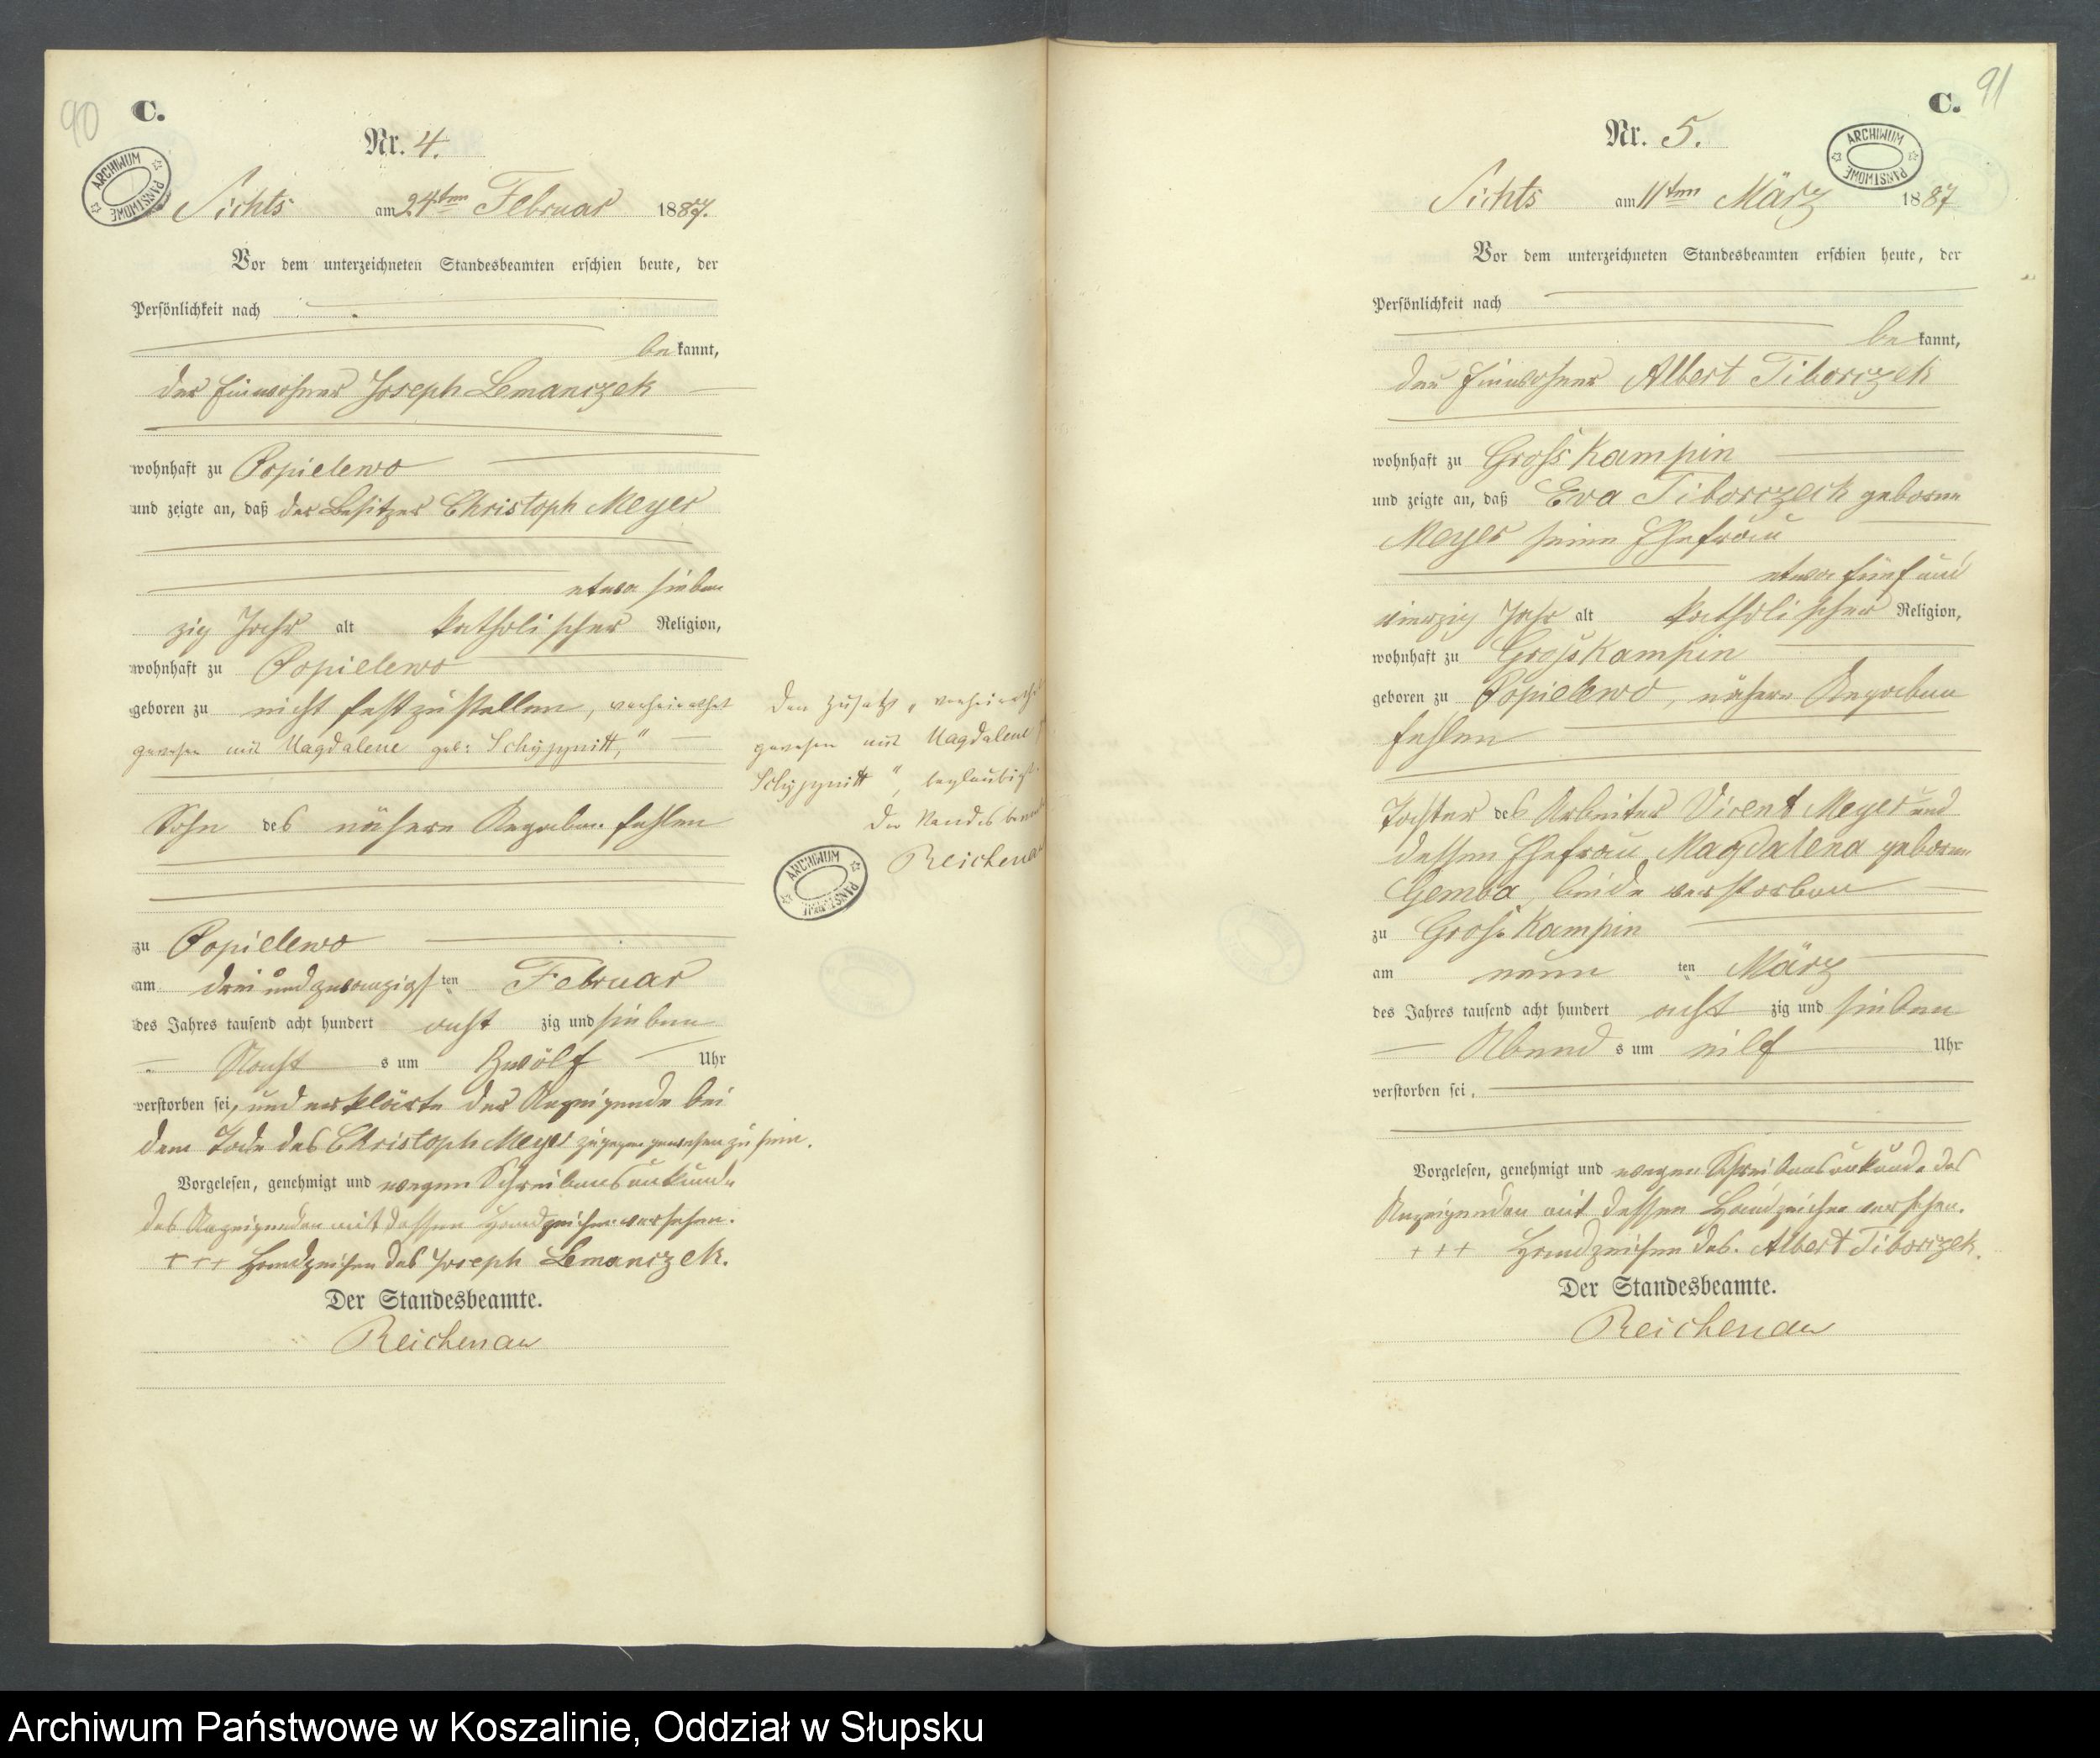 90
C.
Nr. 4.
ARCHIWUM PAŃSTWOWE
Sichts am 24ten Februar 1887.
Vor dem unterzeichneten Standesbeamten erschien heute, der
Persönlichkeit nach
bekannt,
der Einwohner Joseph Lemanczek
wohnhaft zu Popielewo
und zeigte an, daß der Besitzer Christoph Meyer
etwa sieben
zig Jahr alt katholischer Religion,
wohnhaft zu Popielewo
geboren zu nicht festzustellen, verheirathet
gewesen mit Magdalene geb:
Sohn des nähere Angaben fehlen
zu Popielewo
am drei und zwanzigsten Februar
des Jahres tausend acht hundert acht zig und sieben
Nachts um Zwölf Uhr
verstorben sei, und erklärte der Anzeigende bei
dem Tode des Christoph Meyer zugegen gewesen zu sein.
Vorgelesen, genehmigt und wegen Schreibensunkunde
des Anzeigenden mit dessen Handzeichen versehen.
+++ Handzeichen des Joseph Lemanczek.
Der Standesbeamte.
Reichenau
Den Zusatz „verheirathet
gewesen mit Magdalene
", beglaubigt.
Der Standesbeamte
Reichenau
ARCHIWUM PAŃSTWOWE
91
C.
Nr. 5.
ARCHIWUM PAŃSTWOWE
Sichts am 11ten März 1887
Vor dem unterzeichneten Standesbeamten erschien heute, der
Persönlichkeit nach
bekannt,
der Einwohner Albert Tiborczek
wohnhaft zu Gross Kampin
und zeigte an, daß Eva Tiborczeck geborne
Meyer seine Ehefrau
etwa fünf und
vierzig Jahr alt katholischer Religion,
wohnhaft zu Gross Kampin
geboren zu Popielewo, nähere Angaben
fehlen
Tochter des Arbeiter Vicent Meyer und
dessen Ehefrau Magdalena geborne
Gemba, beide verstorben
zu Gross Kampin
am neun ten März
des Jahres tausend acht hundert acht zig und sieben
Abends um eilf Uhr
verstorben sei.
Vorgelesen, genehmigt und wegen Schreibensunkunde des
Anzeigenden mit dessen Handzeichen versehen.
+++ Handzeichen des Albert Tiborczek.
Der Standesbeamte.
Reichenau
Archiwum Państwowe w Koszalinie, Oddział w Słupsku